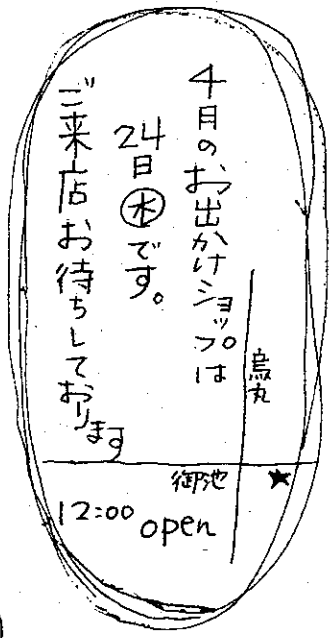 4月のお出かけショップは
24日㊍です。
ご来店お待ちしております
烏丸
御池
★
12:00 open